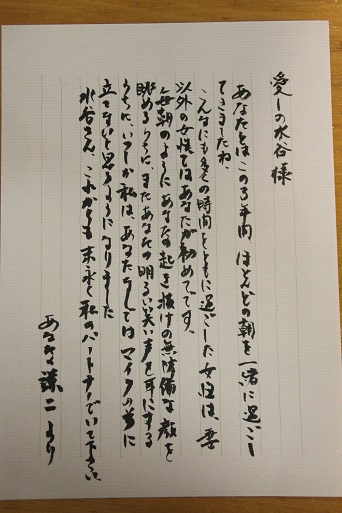 愛しの水谷様
あなたとはこの3年間 ほとんどの朝を一緒に過ごし
てきましたね。
こんなにも多くの時間をともに過ごした女性は、妻
以外の女性ではあなたが初めてです。
毎朝のようにあなたの起き抜けの無防備な顔を
眺めるうちに、またあなたの明るい笑い声を耳にする
うちに、いつしか私は、あなたなしではマイクの前に
立てないと思うようになりました
水谷さん、これからも末永く私のパートナーでいて下さい。
あなたの謙二より